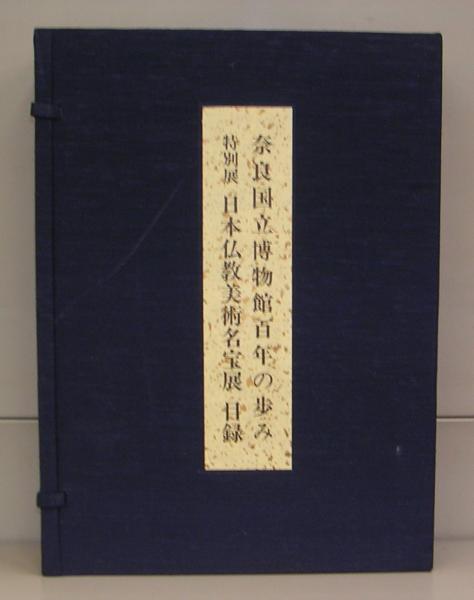 奈良国立博物館百年の歩み
特別展 日本仏教美術名宝展 目録